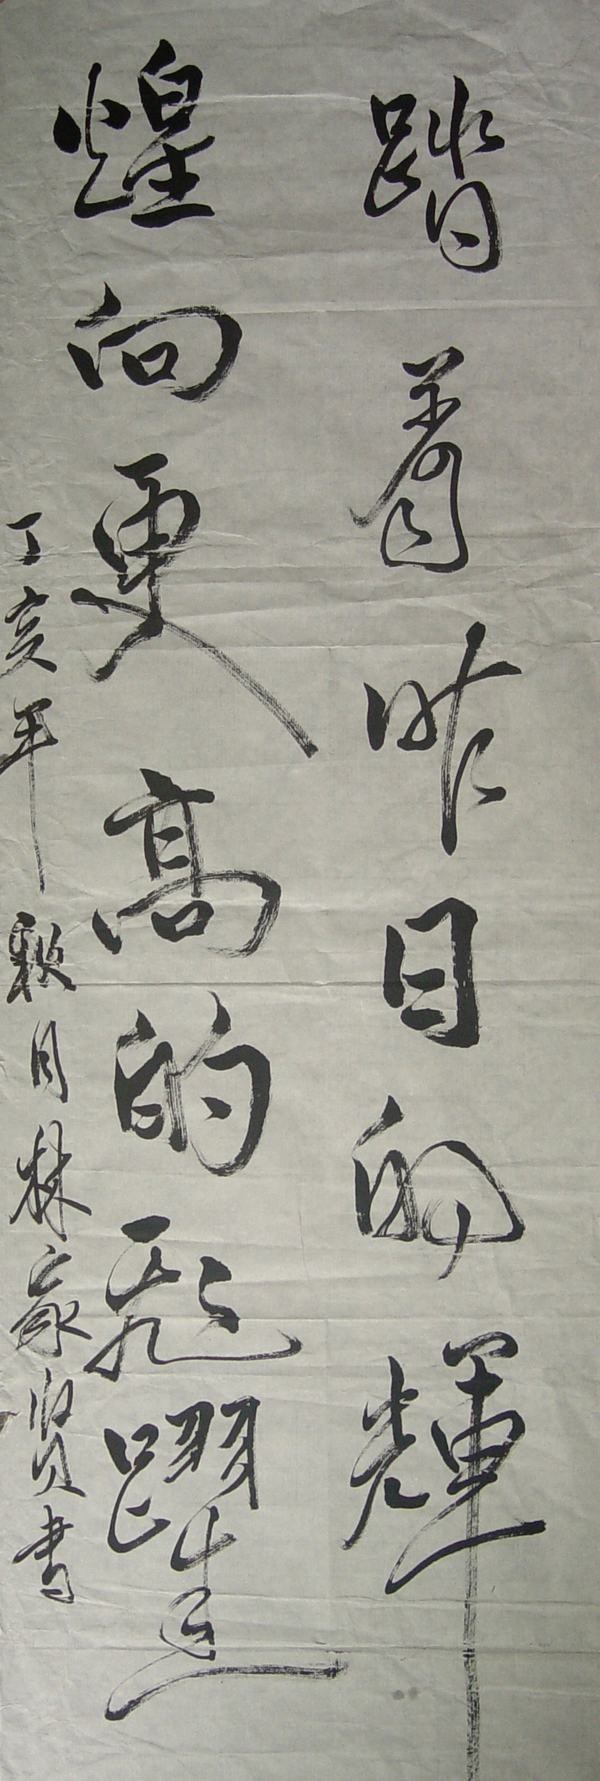 踏着昨日的輝
煌向更高的飛躍
丁亥年秋月林家贤書